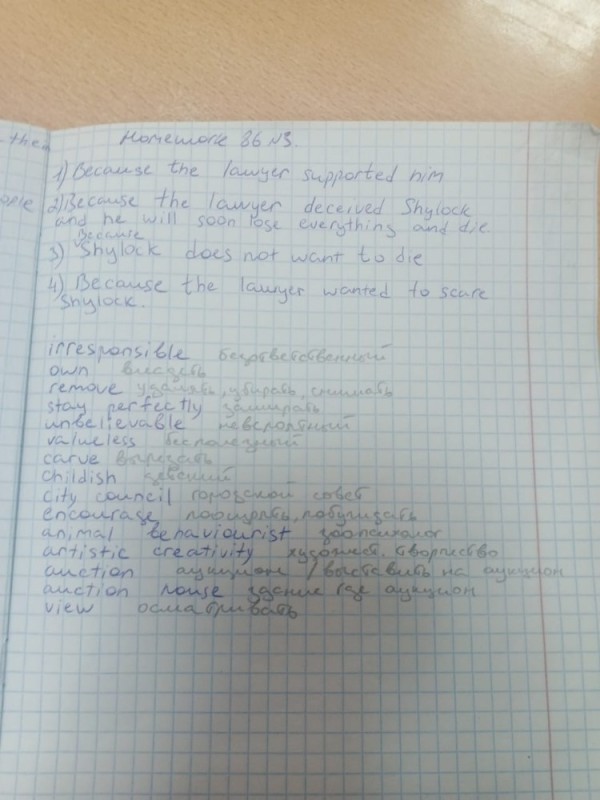 them
Homework 86 N3.
1) Because the lawyer supported him
2) Because the lawyer deceived Shylock
and he will soon lose everything and die
Because
3) Shylock does not want to die
4) Because the lawyer wanted to scare
Shylock.
irresponsible безответственный
own владеть
remove удалять, убирать, снимать
stay perfectly замирать
unbelievable невероятный
valueless бесполезный
carve вырезать
childish детский
city council городской совет
encourage поощрять, побуждать
animal behaviourist зоопсихолог
artistic creativity художест. творчество
auction аукцион / выставить на аукцион
auction house здание где аукцион
view осматривать